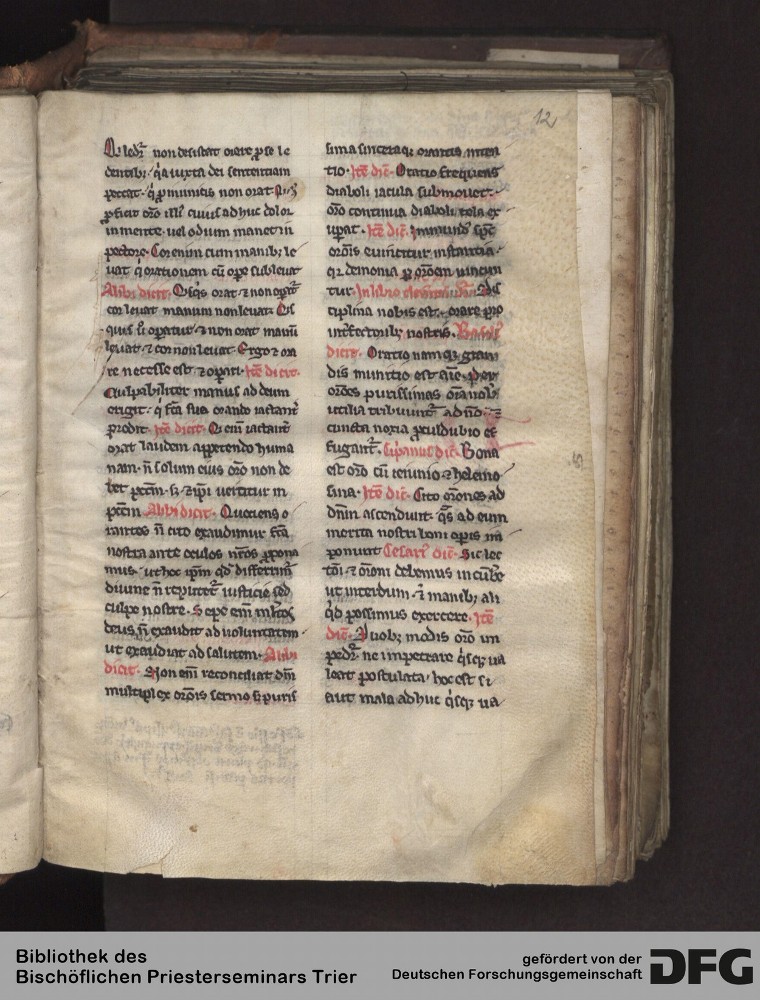 12
Qui ledr̄ non desistat orare ꝓ se le
dentibꝫ· q̄a iuxta dei sententiam
peccat· q̄ ꝓ inimicis non orat·
ꝓficit or̄o illiꝰ cuius adhuc dolor
in mente· uel odium manet in
pectore· Cor enim cum manibꝫ le
uat q̄ orationem cū oꝑe subleuat
Alibi dicit· Qisq̄s orat ⁊ non oꝑat̄
cor leuat manum non leuat· Qis
quis ū oꝑatur ⁊ non orat manū
leuat ⁊ cor non leuat· Ergo ⁊ ora
re necesse est ⁊ oꝑari· Itē dicit·
Culpabiliter manus ad deum
erigit· q̄ fc̄a sua orando iactant̄
prodit· Itē dicit· Qi enī iactant̄
orat laudem appetendo huma
nam· n̄ solum eius or̄o non de
let pcc̄m· sꝫ ⁊ ip̄i uertitur in
pcc̄m Alibi dicit· Quociens o
rantes n̄ cito exaudimur fc̄a
nostra ante oculos nr̄os ꝓpona
mus· ut hoc ip̄m qd̄ differim̄
diuine n̄ reputet̄ iusticie sed
culpe nostre· Sepe eni mltos
deus n̄ exaudit ad uoluntatem
ut exaudiat ad salutem· Alibi
dicit· Non eni reconciliat dm̄
multiplex or̄onis sermo sꝫ puris
sima sinceraqꝫ orantis inten
tio· Itē dic̄· Oratio frequens
diaboli iacula submouet·
or̄o continua diaboli tela ex
uꝑat· Itē dic̄· Inmundꝰ spc̄
or̄onis euincitur instantia·
qꝫ demonia ꝑ or̄oem uincun
tur· In libro
ciplina nobis est· orare pro
int̄fectoribꝫ nostris· Basilꝰ
dicit· Oratio namqꝫ gran
dis munitio est aīe· Per
or̄oes purissimas om̄a nobꝫ
utilia tribuunt̄ a dn̄o· ⁊
cuncta noxia procul dubio ef
fugant̄· Cip̄anus dic̄· Bona
est or̄o cū ieiunio ⁊ helemo
sina· Itē dic̄· Cito or̄ones ad
dn̄m ascendunt· q̄s ad eum
merita nostri boni oꝑis im
ponunt Cesariꝰ dic̄· Sic lec
tōi· ⁊ or̄oni debemus incūbe
ut interdum· ⁊ manibꝫ ali
q̄d possimus exercere· Itē
dic̄· Duobꝫ modis or̄o im
pedr̄· ne impetrare q̄sqꝫ ua
leat postulata· hoc est si
aut mala adhuc q̄sqꝫ ua
Bibliothek des
Bischöflichen Priesterseminars Trier
gefördert von der
Deutschen Forschungsgemeinschaft
DFG